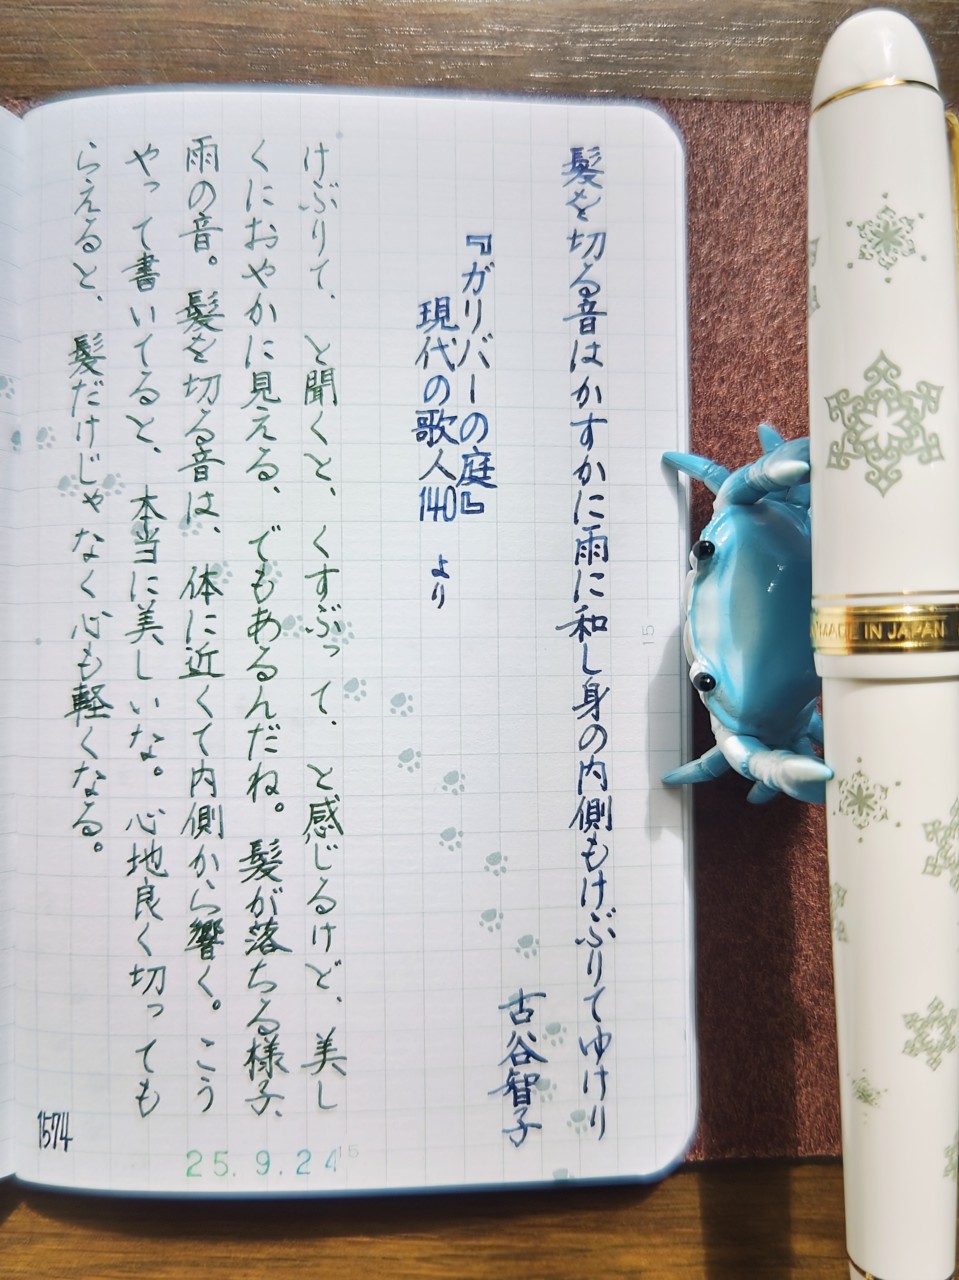 髪を切る音はかすかに雨に和し身の内側もけぶりてゆけり
古谷智子
『ガリバーの庭』
現代の歌人140 より
けぶりて、と聞くと、くすぶって、と感じるけど、美し
くにおやかに見える、でもあるんだね。髪が落ちる様子、
雨の音。髪を切る音は、体に近くて内側から響く。こう
やって書いてると、本当に美しいな。心地良く切っても
らえると、髪だけじゃなく心も軽くなる。
1574
25.9.24
15
15
MADE IN JAPAN